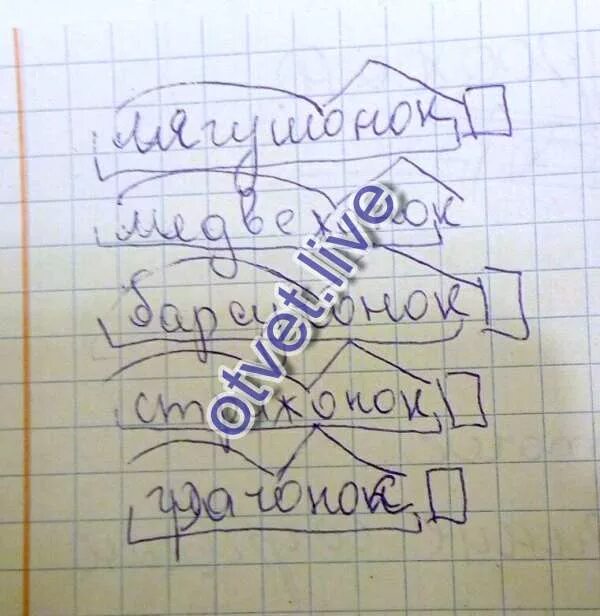 лягушонок
медвежонок
барсучонок
стрижонок
грачонок
otvet.live